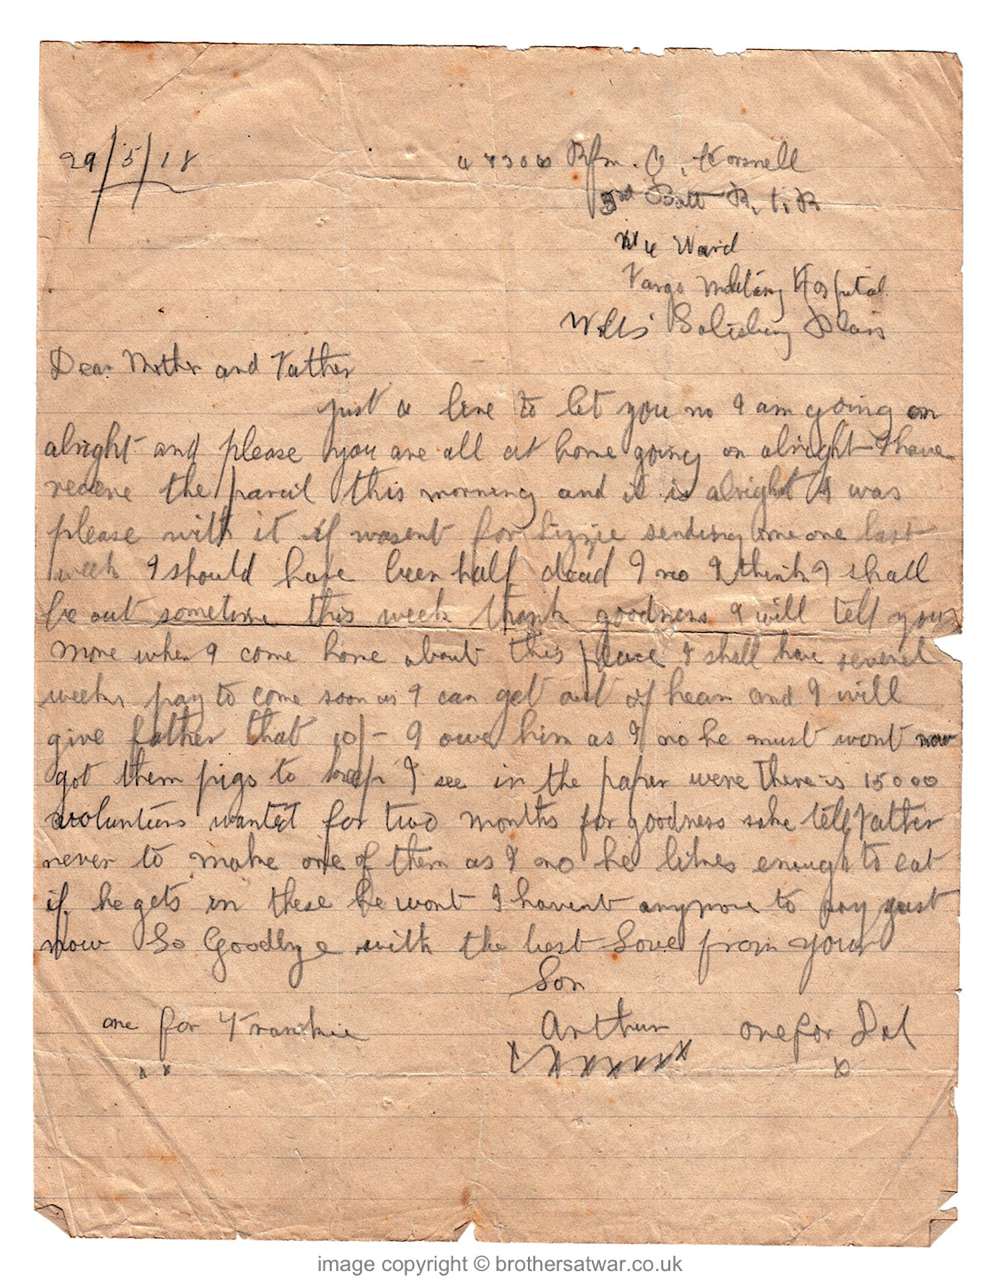 29/5/18
47306 Rfm. A, Worsnell
3rd Batt R. I. R
No 4 Ward
Fargo Military Hospital
Wilts' Salisbury Plain
Dear Mother and Father
just a line to let you no I am going on
alright and please you are all at home going on alright I have
receive the parcil this morning and it is alright I was
please with it if wasent for Lizzie sending me one last
week I should have been half dead I no I think I shall
be out sometime this week thank goodness I will tell you
more when I come home about this place I shall have severel
weeks pay to come soon as I can get out of hear and I will
give father that 10/- I owe him as I no he must wont now
got them pigs to keep I see in the paper were there is 15000
volunteers wanted for two months for goodness sake tell Father
never to make one of them as I no he likes enough to eat
if he gets in these he wont I havent anymore to say just
now So Goodbye with the best Love from your
Son
one for Frankie Arthur one for
x x x x x x x x
image copyright © brothersatwar.co.uk